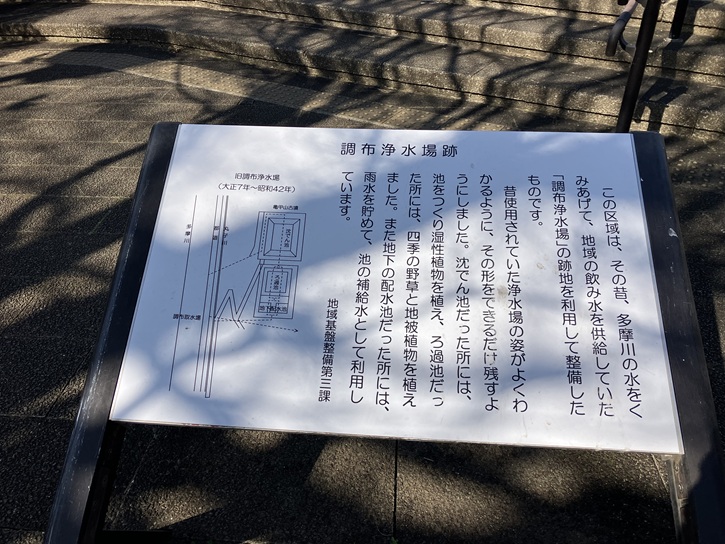 調布浄水場跡
この区域は、その昔、多摩川の水をく
みあげて、地域の飲み水を供給していた
「調布浄水場」の跡地を利用して整備した
ものです。
昔使用されていた浄水場の姿がよくわ
かるように、その形をできるだけ残すよ
うにしました。沈でん池だった所には、
池をつくり湿性植物を植え、ろ過池だっ
た所には、四季の野草と地被植物を植え
ました。また地下の配水池だった所には、
雨水を貯めて、池の補給水として利用し
ています。
地域基盤整備第三課
旧調布浄水場
(大正7年〜昭和42年)
亀甲山古墳
多摩川
都道
丸子川
沈でん池
ろ過池
地下配水池
調布取水場